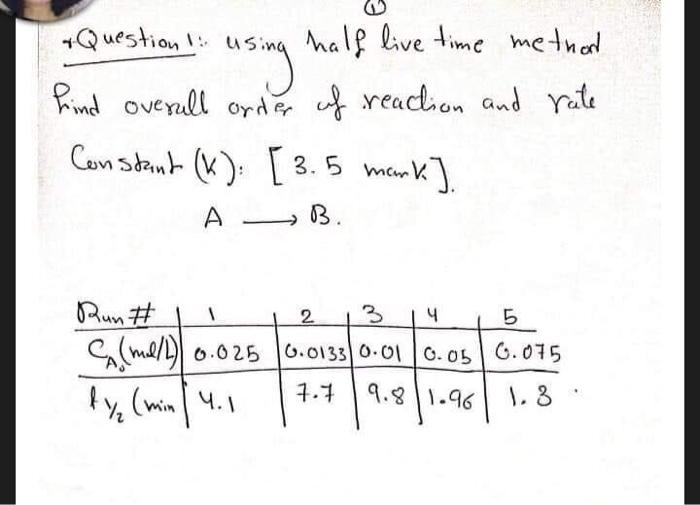 ①
*Question 1:- using half live time method
Find overall order of reaction and rate
Constant (K): [3.5 mark].
A → B.
Run # 1 2 3 4 5
CA₀(mol/L) 0.025 0.0133 0.01 0.05 0.075
t½ (min 4.1 7.7 9.8 1.96 1.3